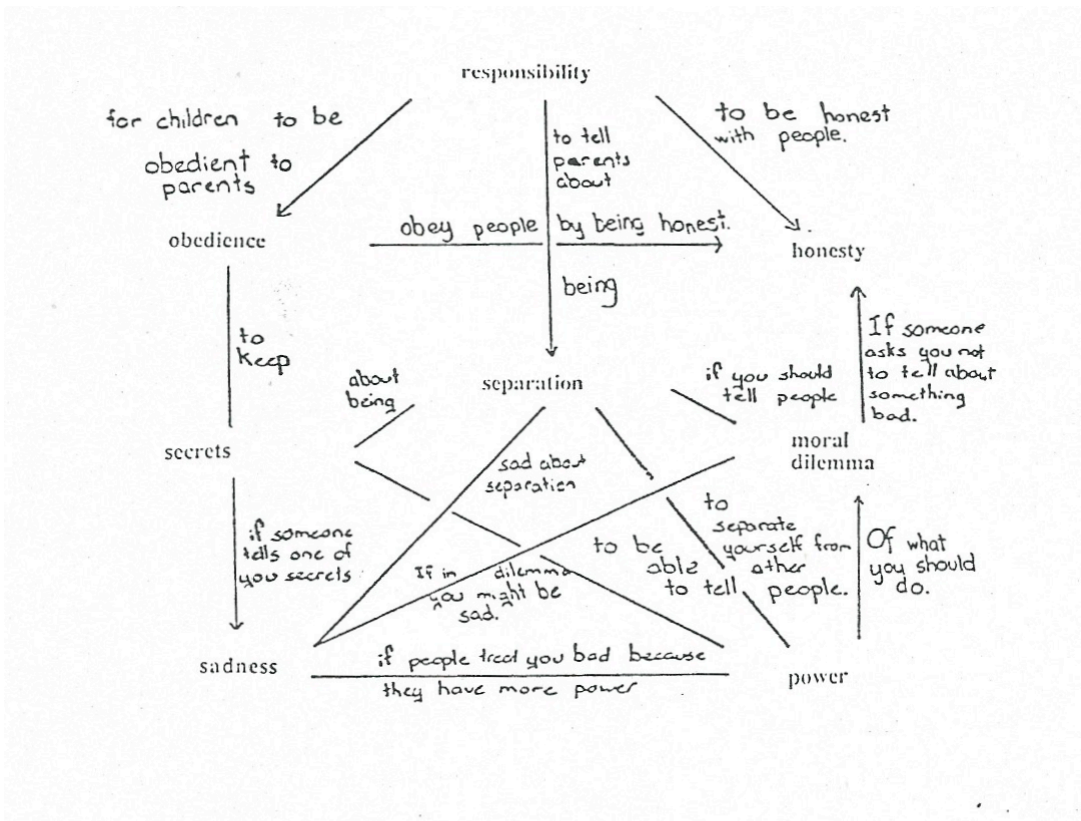 responsibility
for children to be
obedient to
parents
to tell
parents
about
to be honest
with people.
obedience
obey people by being honest.
honesty
being
to
keep
about
being
separation
if you should
tell people
If someone
asks you not
to tell about
something
bad.
secrets
moral
dilemma
sad about
separation
if someone
tells one of
you secrets
If in dilemma
you might be
sad.
to be
able
to tell
to
separate
yourself from
other
people.
Of what
you should
do.
sadness
if people treat you bad because
they have more power
power